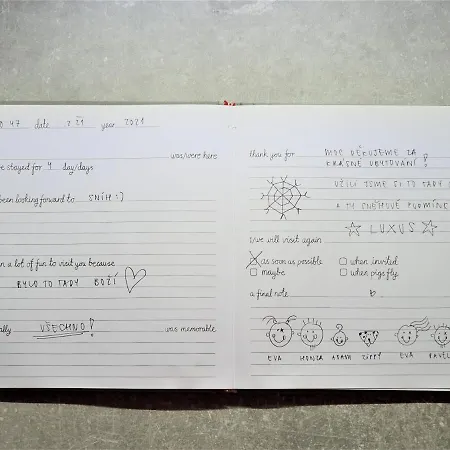 47 date 2 21 year 2021
was/were here
stayed for 4 day/days
been looking forward to SNÍH :)
a lot of fun to visit you because
BYLO TO TADY BOŽÍ
VŠECHNO! was memorable
thank you for MOC DĚKUJEME ZA
KRÁSNÉ UBYTOVÁNÍ!
UŽILI JSME SI TO TADY
A TY SNĚHOVÉ
LUXUS
I/we will visit again
as soon as possible when invited
maybe when pigs fly
a final note
EVA HONZA ADAM ZIPPY EVA